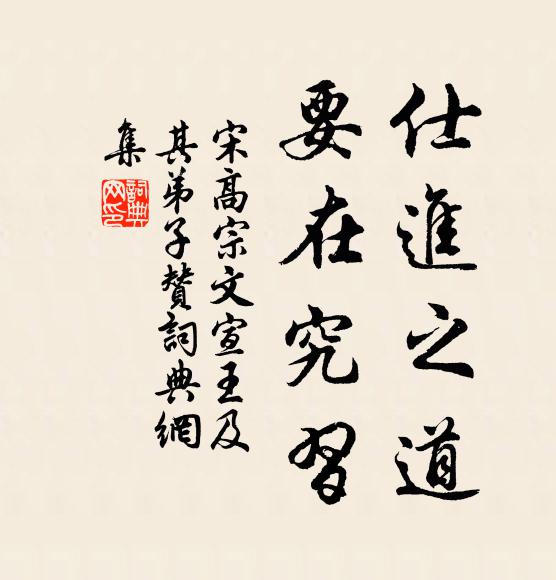 仕進之道
要在究習
宋高宗文宣王及
其弟子贊詞典網
集
詞典網印